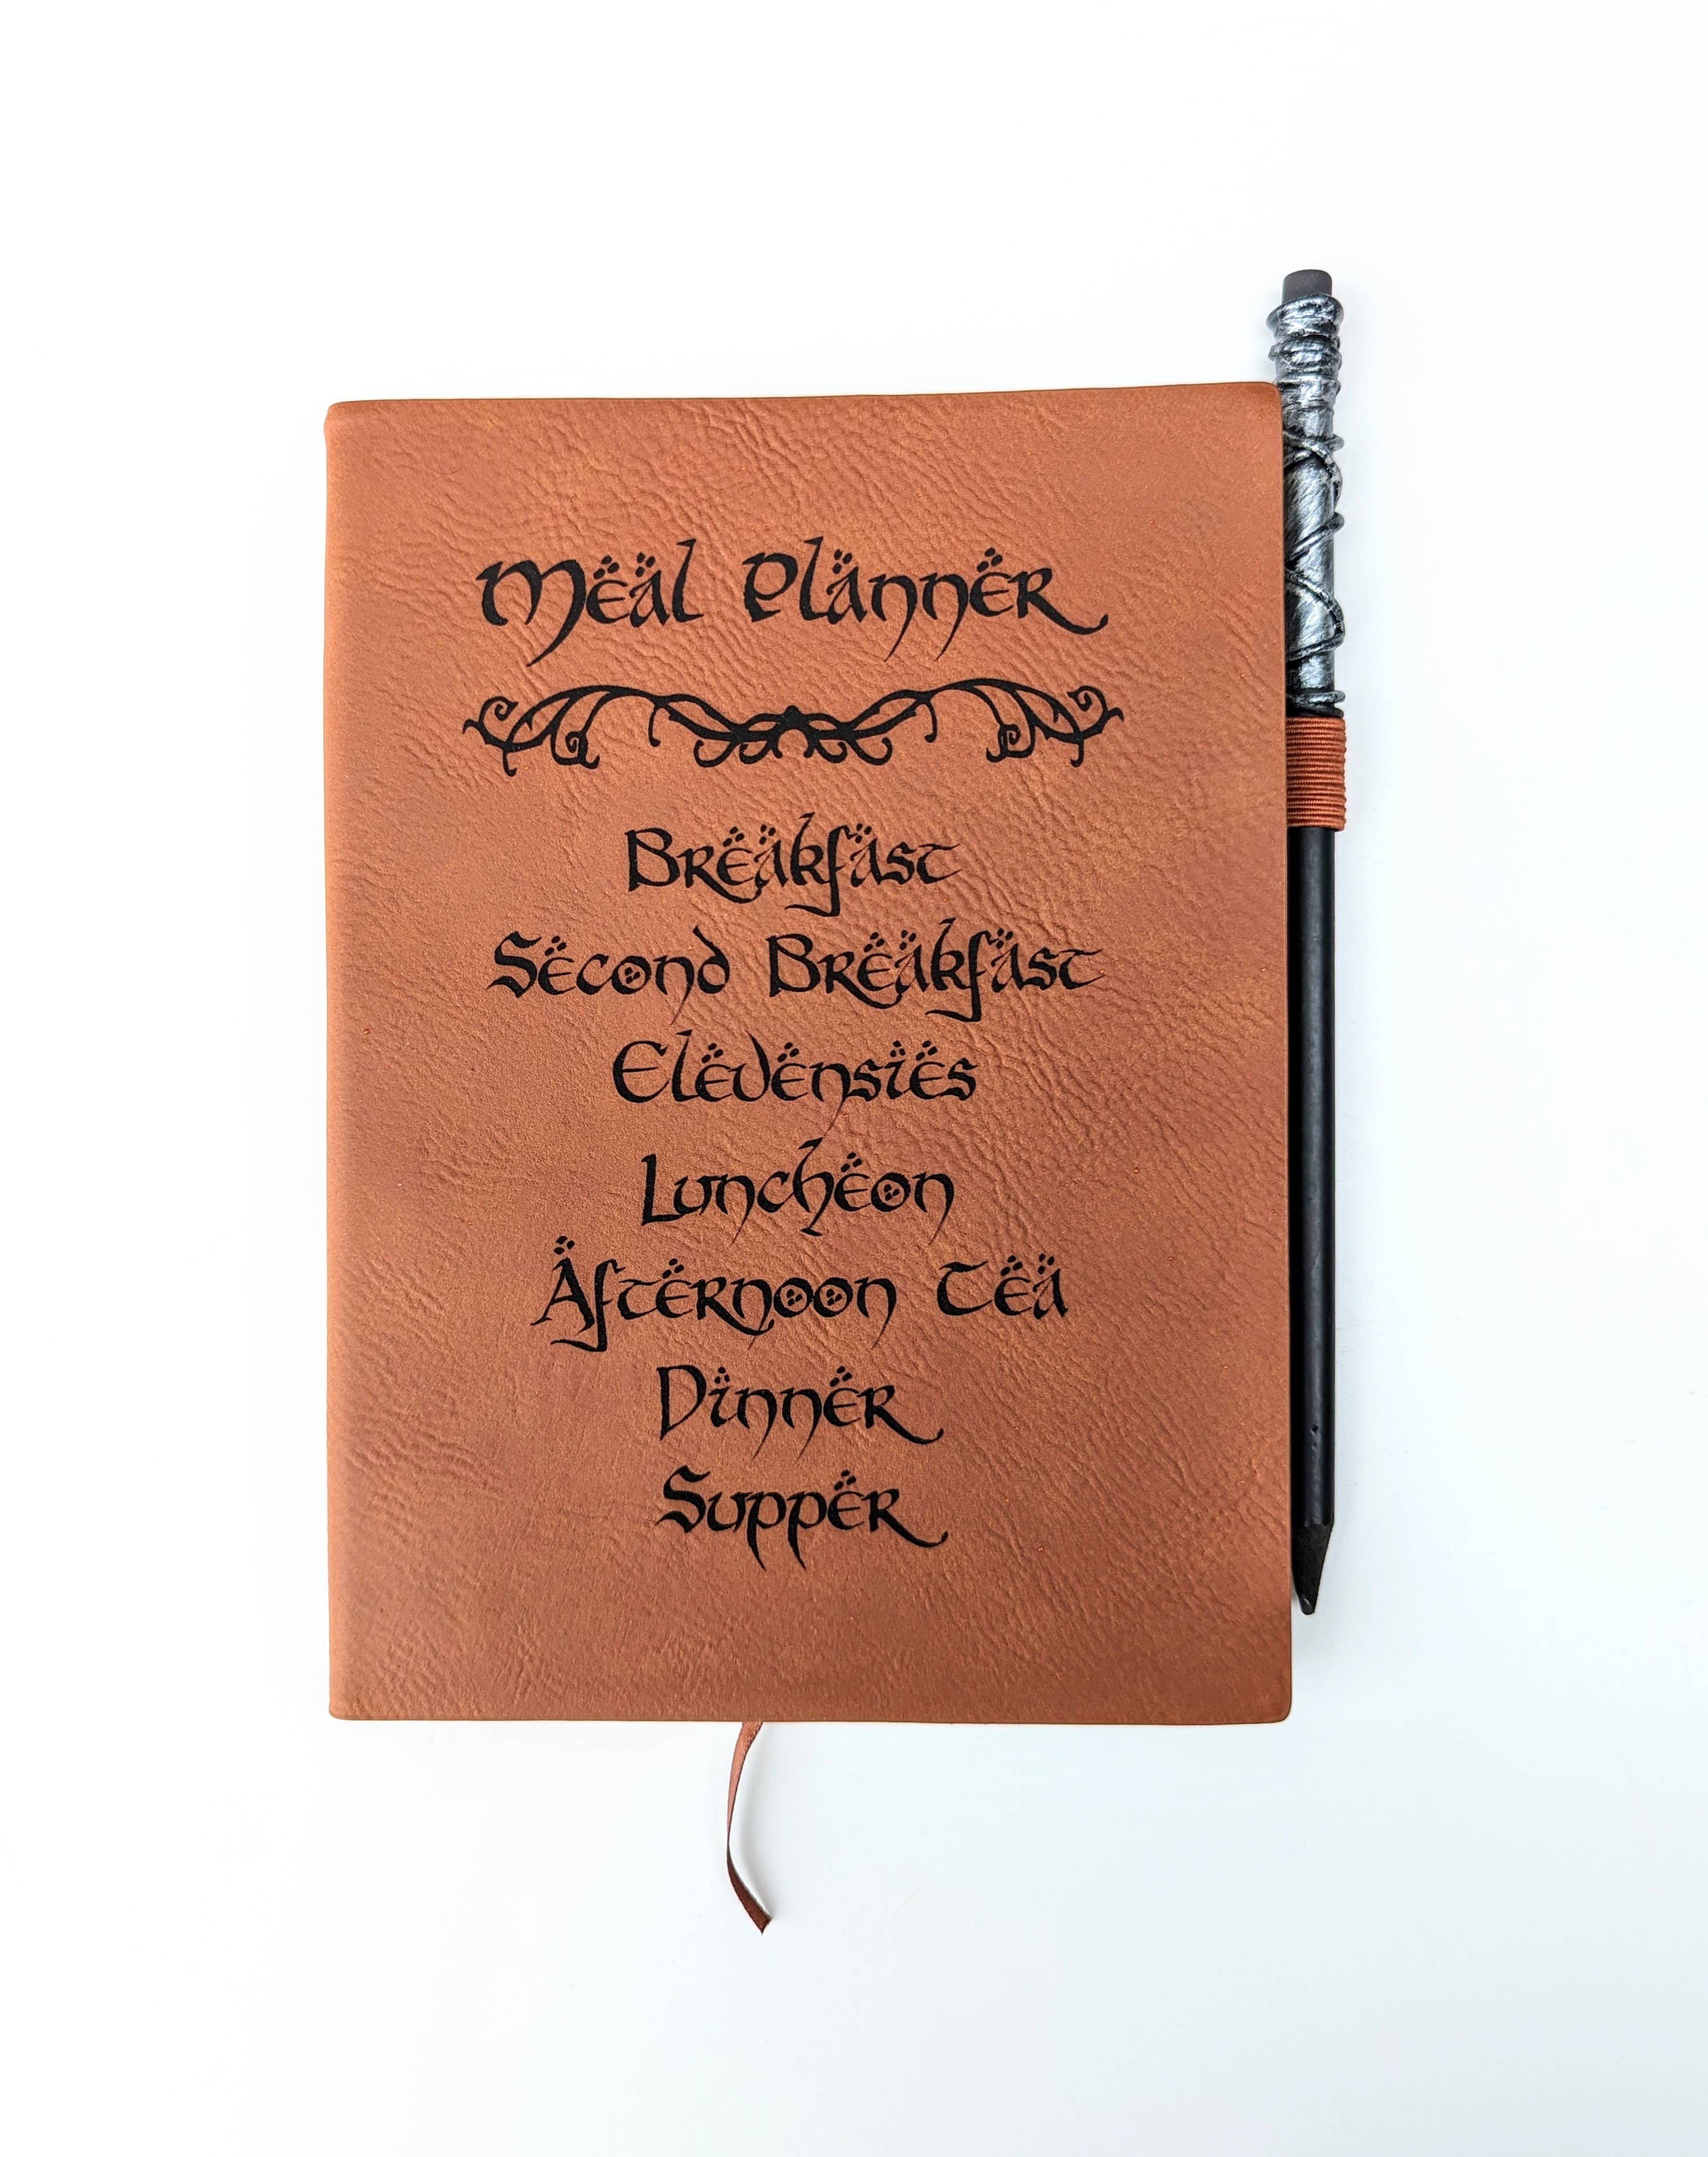 Meal Planner
Breakfast
Second Breakfast
Elevensies
Luncheon
Afternoon Tea
Dinner
Supper